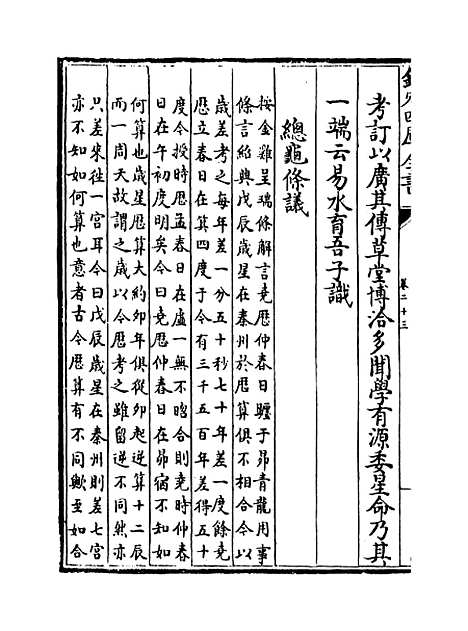 欽定四庫全書
卷二十三
考訂以廣其傳草堂博洽多聞學有源委星命乃其
一端云易水育吾子識
總龜條議
按金雞呈瑞條解言堯厯仲春日躔于昴青龍用事
條言紹興戊辰歲星在秦州於厯算俱不相合今以
歲差考之每年差一分五十秒七十年差一度餘堯
厯立春日在箕四度于今有三千五百年差得五十
度今授時厯孟春日在虛一無不昭合則堯時仲春
日在午初度明矣今曰堯厯仲春日在昴宿不知如
何算也歲星厯算大約卯年俱從卯起逆算十二辰
而一周天故謂之歲以今厯考之雖留逆不同然亦
只差來往一宮耳今曰戊辰歲星在秦州則差七宮
亦不知如何算也意者古今厯算有不同歟至如合